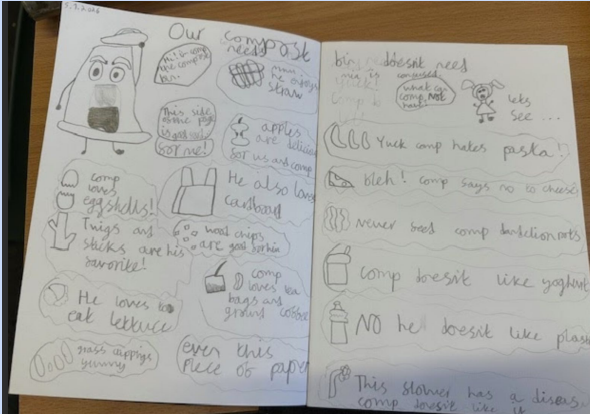 5.3.2026
Our compost
need
Hi! im comp
the compost
bin.
he enjoys
straw
This side
of the page
is good
for me!
apples
are delicious
for us and comp
comp
loves
eggshells!
He also loves
cardboard
Twigs and
sticks are his
favorite!
wood chips
are good for him
comp
loves tea
bags and
ground coffee
He loves to
eat lettuce
grass clippings
yummy
even this
piece of paper
bin, doesnt need
mia is confused
what can
comp not
have?
lets
see ...
Yuck comp hates pasta!!
bleh! comp says no to cheese
never feed comp dandelion roots
Comp doesnt like yoghurt
NO he doesnt like plastic
This flower has a disease
comp doesnt like it